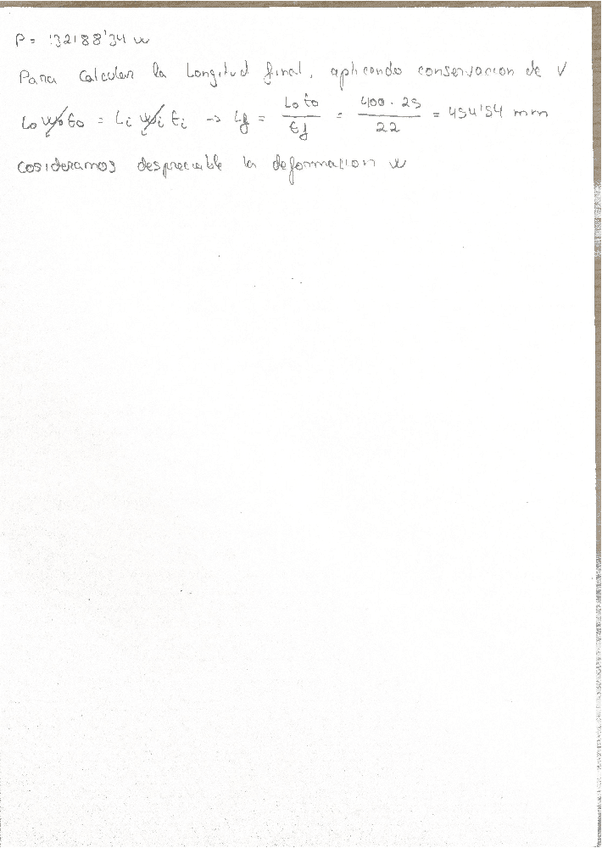 P = 132188'34 w
Para Calcular la Longitud final, aplicando conservacion de V
Lo wo to = Li wi ti → Lf = Lo to / tf = 400 · 25 / 22 = 454'54 mm
cosideramos despreciable la deformacion w